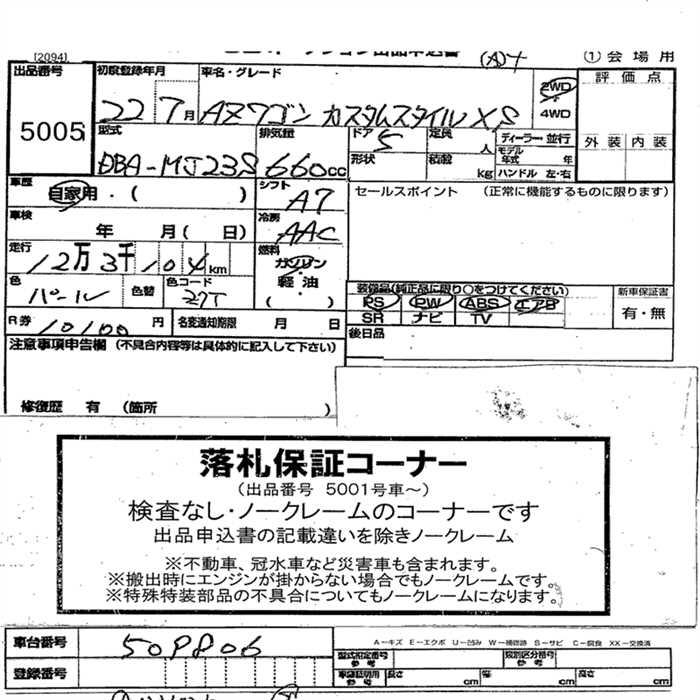 [2094] ① 会場用
出品番号 初度登録年月 車名・グレード 2WD 4WD 評価点
5005 22 7月 AZワゴン カスタムスタイル XS
型式 排気量 ドア 定員 ディーラー・並行 外装 内装
DBA-MJ23S 660cc 5 人 モデル年式 年
形状 積載 kg ハンドル 左・右
車歴 自家用・( ) シフト A7 セールスポイント (正常に機能するものに限ります)
車検 年 月( 日) 冷房 AAC
走行 12万3千104km 燃料 ガソリン 軽油・( )
色 パール 色替 色コード Z7T
装備品(純正品に限り○をつけてください) 新車保証書
PS PW ABS エアB 有・無
SR ナビ TV
R券 10100円 名変通知期限 月 日 後日品
注意事項申告欄 (不具合内容等は具体的に記入して下さい)
修復歴 有 (箇所 )
落札保証コーナー
(出品番号 5001号車~)
検査なし・ノークレームのコーナーです
出品申込書の記載違いを除きノークレーム
※不動車、冠水車など災害車も含まれます。
※搬出時にエンジンが掛からない場合でもノークレームです。
※特殊特装部品の不具合についてもノークレームになります。
車台番号 509806 A-キズ E-エクボ U-凹み W-補修跡 S-サビ C-腐食 XX-交換済
型式指定番号 参考 類別区分番号 参考
登録番号 車庫証明用 参考 長さ cm 幅 cm 高さ cm